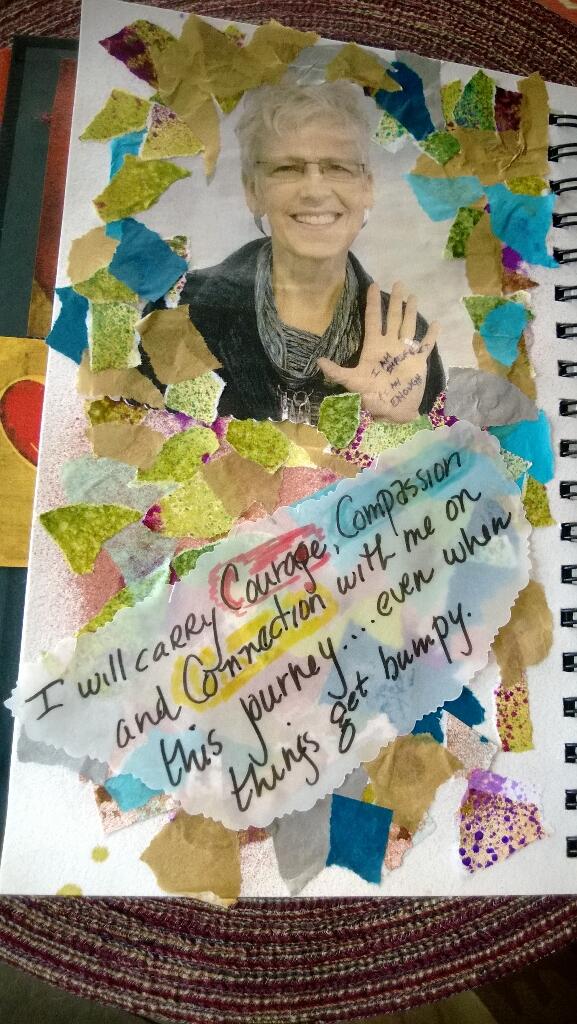 I AM
I AM
ENOUGH
I will carry Courage, Compassion
and Connection with me on
this journey... even when
things get bumpy.